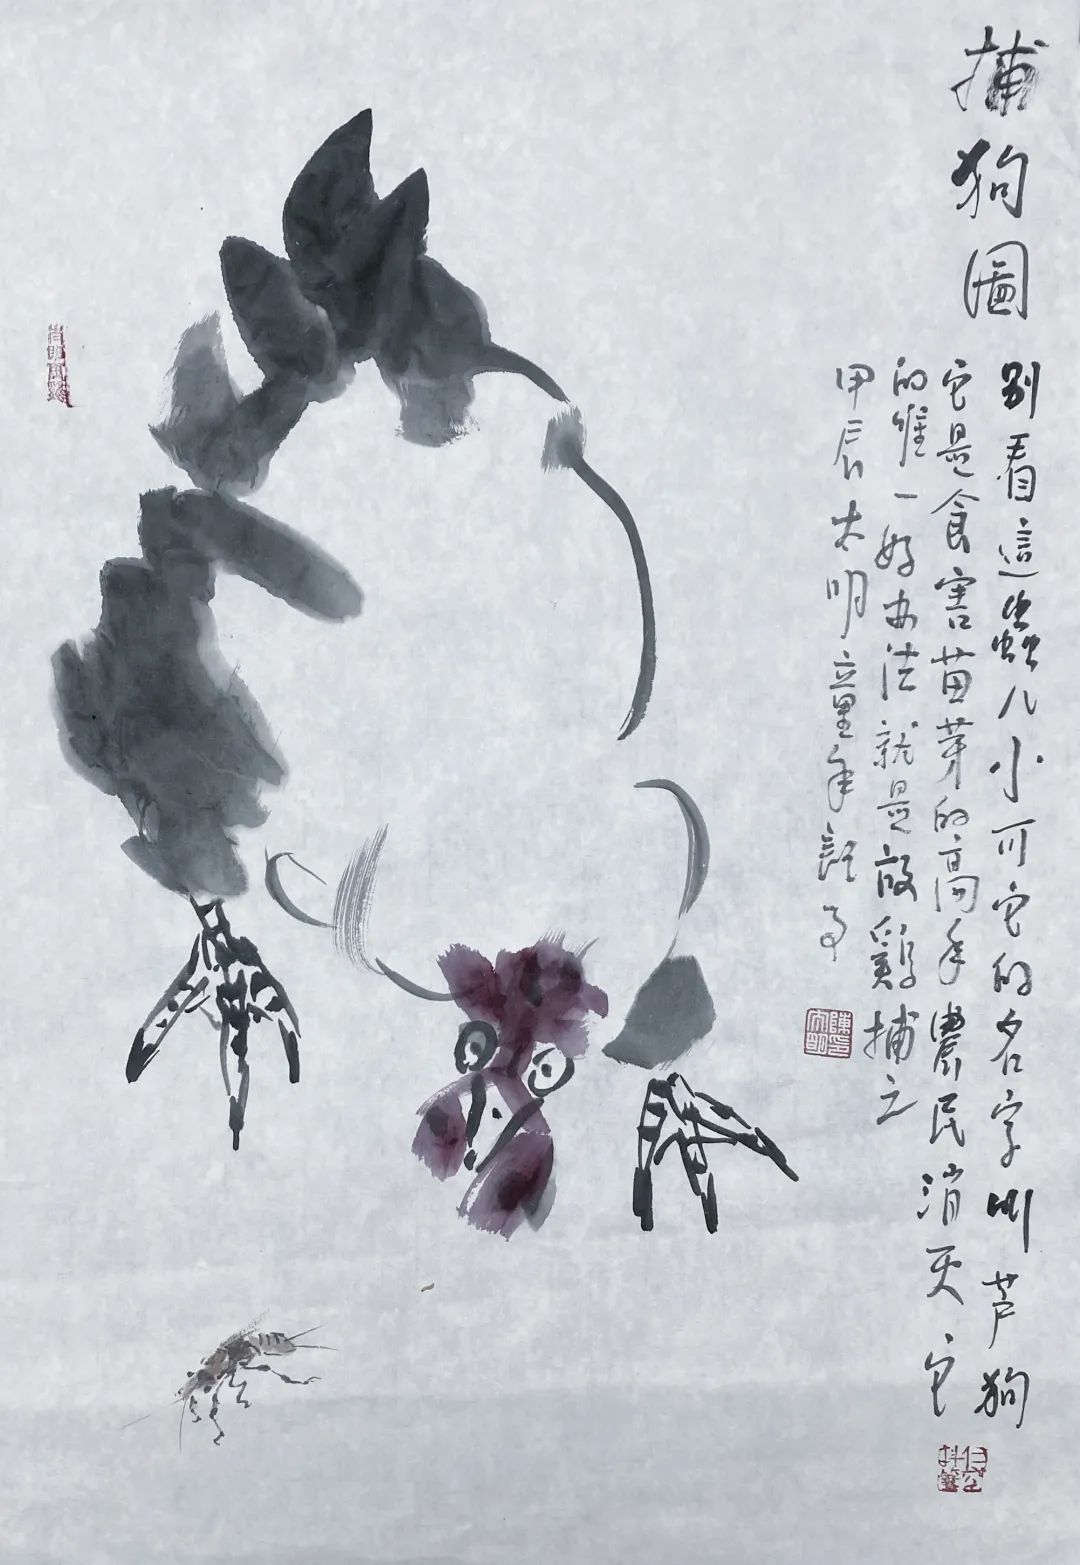 捕狗圖
别看這蟲儿小可它的名字叫芦狗
它是食害苗芽的高手農民消灭它
的唯一好办法就是放鷄捕之
甲辰太明童年記事